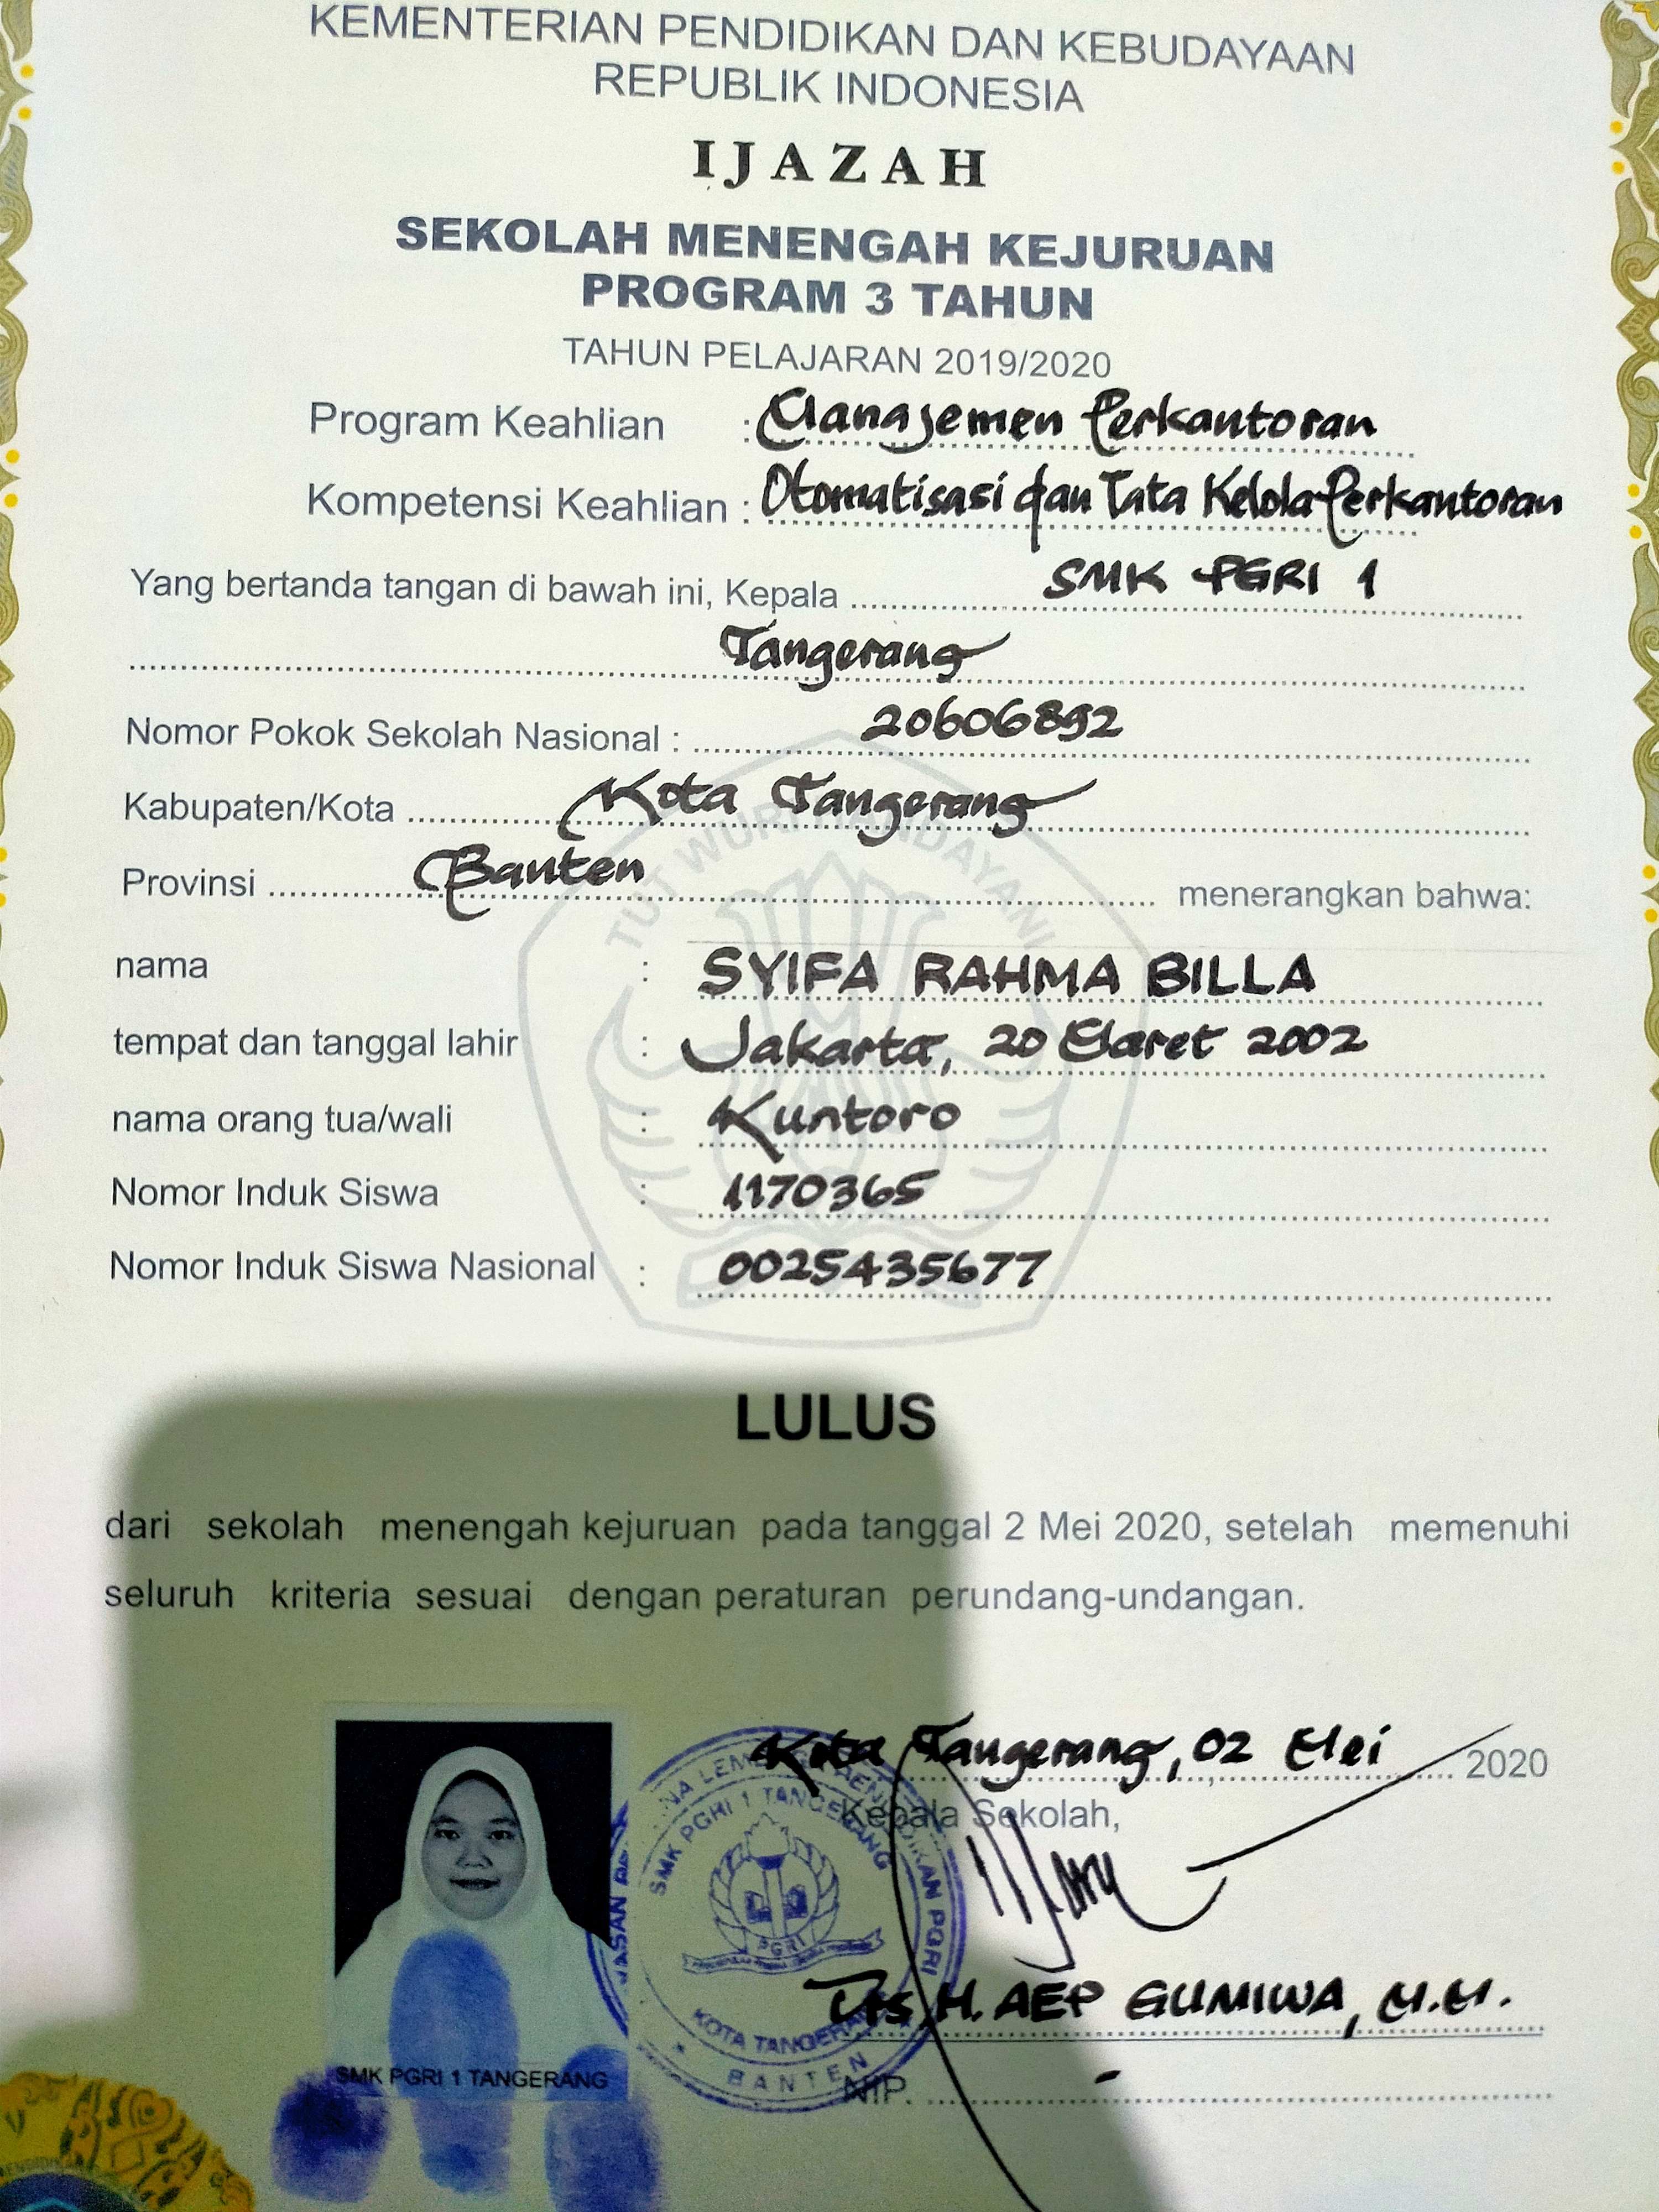 KEMENTERIAN PENDIDIKAN DAN KEBUDAYAAN
REPUBLIK INDONESIA
IJAZAH
SEKOLAH MENENGAH KEJURUAN
PROGRAM 3 TAHUN
TAHUN PELAJARAN 2019/2020
Program Keahlian : Manajemen Perkantoran
Kompetensi Keahlian : Otomatisasi dan Tata Kelola Perkantoran
Yang bertanda tangan di bawah ini, Kepala SMK PGRI 1
Tangerang
Nomor Pokok Sekolah Nasional : 20606892
Kabupaten/Kota Kota Tangerang
Provinsi Banten menerangkan bahwa:
TUT WURI HANDAYANI
nama : SYIFA RAHMA BILLA
tempat dan tanggal lahir : Jakarta, 20 Maret 2002
nama orang tua/wali : Kuntoro
Nomor Induk Siswa : 1170365
Nomor Induk Siswa Nasional : 0025435677
LULUS
dari sekolah menengah kejuruan pada tanggal 2 Mei 2020, setelah memenuhi
seluruh kriteria sesuai dengan peraturan perundang-undangan.
Kota Tangerang, 02 Mei 2020
Kepala Sekolah,
SMK PGRI 1 TANGERANG
PGRI
KOTA TANGERANG
BANTEN
Drs. H. AEP GUMIWA, M.M.
SMK PGRI 1 TANGERANG
NIP. -